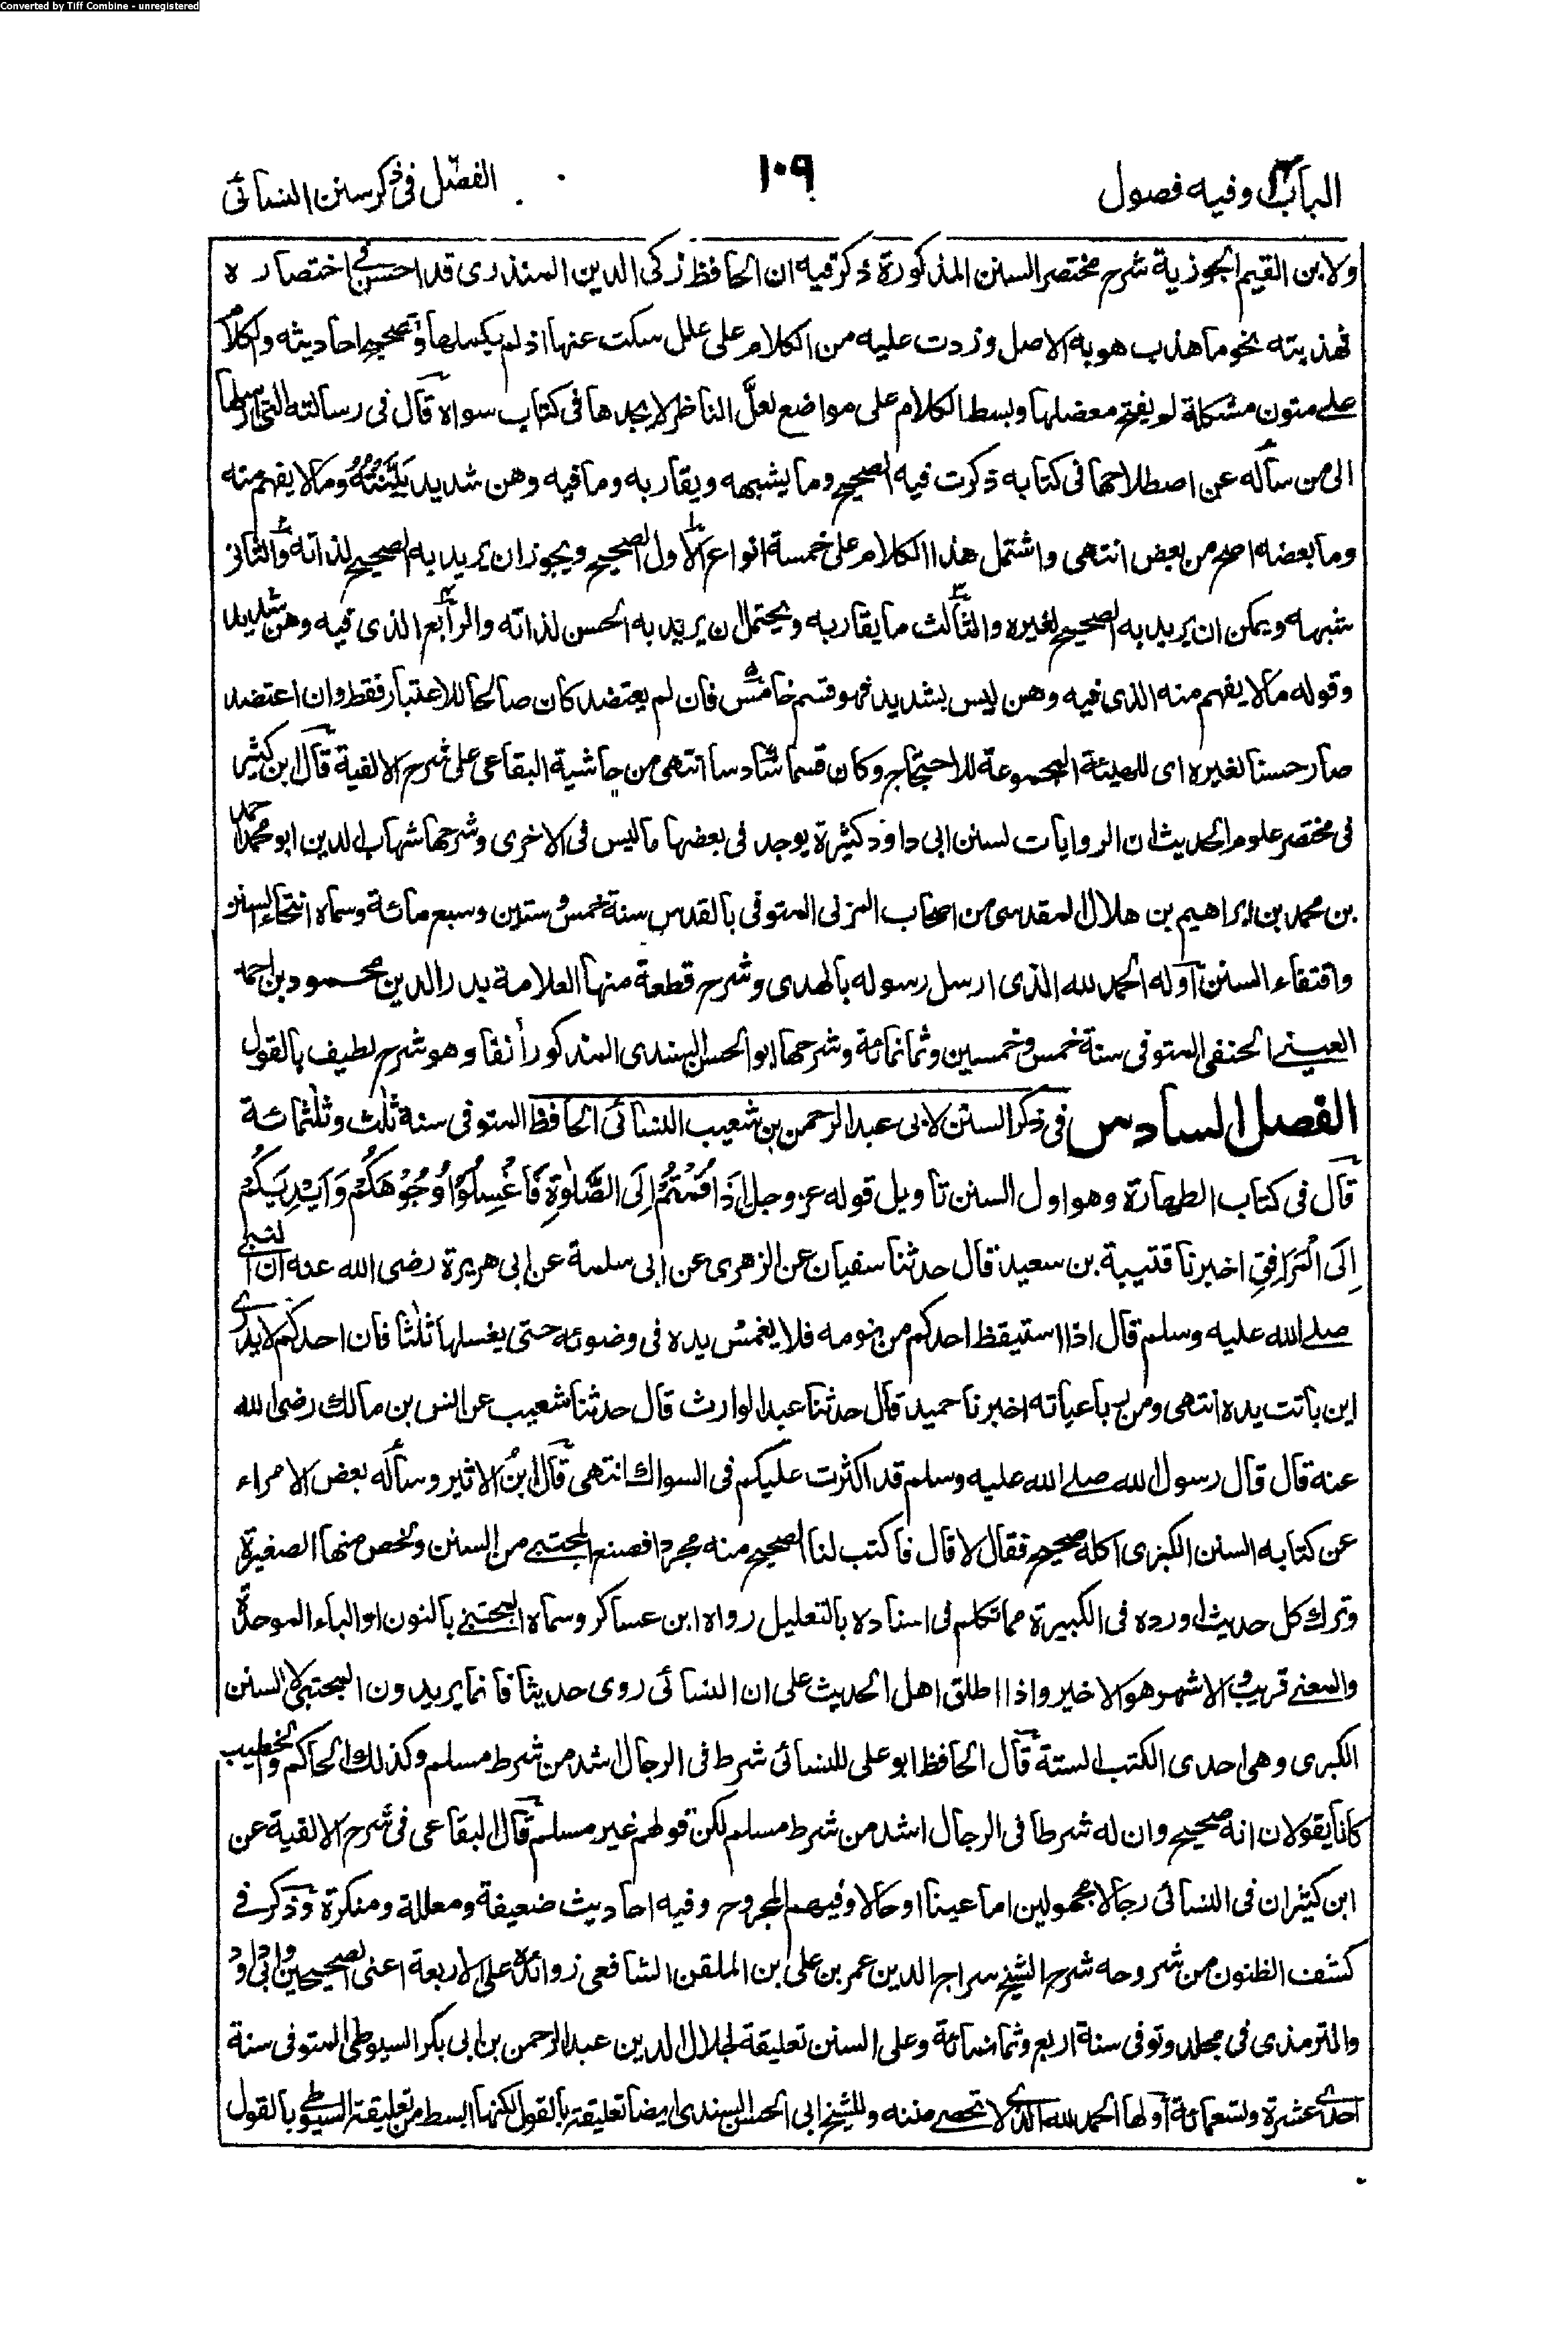 Converted by Tiff Combine - unregistered
الباب وفيه فصول
١٠٩
الفصل فى ذكر سنن النسائى
ولابن القيم الجوزية شرح مختصر السنن المذكورة ذكر فيه ان الحافظ زكى الدين المنذرى قد احسن فى اختصاره
فهذبته نحو ما هذب هو به الاصل وزدت عليه من الكلام على علل سكت عنها اذ لم يكملها وتصحيح احاديثه والكلام
على متون مشكلة لم يفتح معضلها وبسط الكلام على مواضع لعلّ الناظر لا يجدها فى كتاب سواه قال فى رسالته التى ارسلها
الى من سأله عن اصطلاحه فى كتابه ذكرت فيه الصحيح وما يشبهه ويقاربه وما فيه وهن شديد بَيَّنْتُهُ وما لا يفهم منه
وما بعضه اصح من بعض انتهى واشتمل هذا الكلام على خمسة انواع الاول الصحيح ويجوز ان يريد به الصحيح لذاته والثانى
شبهه ويمكن ان يريد به الصحيح لغيره والثالث ما يقاربه ويحتمل ان يريد به الحسن لذاته والرابع الذى فيه وهن شديد
وقوله ما لا يفهم منه الذى فيه وهن ليس بشديد فهو قسم خامس فان لم يعتضد كان صالحا للاعتبار فقط وان اعتضد
صار حسنا لغيره اى للهيئة المجموعة للاحتجاج وكان قسما سادسا انتهى من حاشية البقاعى على شرح الالفية قال ابن كثير
فى مختصر علوم الحديث ان الروايات لسنن ابى داود كثيرة يوجد فى بعضها ما ليس فى الاخرى وشرحها شهاب الدين ابو محمد احمد
بن محمد بن ابراهيم بن هلال المقدسى من اصحاب المزنى المتوفى بالقدس سنة خمس و ستين وسبع مائة وسماه انتحاء السنن
واقتفاء السنن اوله الحمد لله الذى ارسل رسوله بالهدى وشرح قطعة منها العلامة بدر الدين محمود بن احمد
العينى الحنفى المتوفى سنة خمس وخمسين وثمانمائة وشرحها ابو الحسن السندى المذكور أنفا وهو شرح لطيف بالقول
الفصل السادس فى ذكر السنن لابى عبد الرحمن بن شعيب النسائى الحافظ المتوفى سنة ثلث وثلثمائة
قال فى كتاب الطهارة وهو اول السنن تأويل قوله عز وجل اِذَا قُمْتُمْ اِلَى الصَّلٰوةِ فَاغْسِلُوْا وُجُوْهَكُمْ وَاَيْدِيَكُمْ
اِلَى الْمَرَافِقِ اخبرنا قتيبة بن سعيد قال حدثنا سفيان عن الزهرى عن ابى سلمة عن ابى هريرة رضى الله عنه ان النبى
صلى الله عليه وسلم قال اذا استيقظ احدكم من نومه فلا يغمس يده فى وضوئه حتى يغسلها ثلٰثا فان احدكم لا يدرى
اين باتت يده انتهى ومن رباعياته اخبرنا حميد قال حدثنا عبد الوارث قال حدثنا شعيب عن انس بن مالك رضى الله
عنه قال قال رسول الله صلى الله عليه وسلم قد اكثرت عليكم فى السواك انتهى قال ابن الاثير وسأله بعض الامراء
عن كتابه السنن الكبرى اكله صحيح فقال لا قال فاكتب لنا الصحيح منه مجردا فصنع المجتبى من السنن ولخص منها الصغيرة
وترك كل حديث اورده فى الكبيرة مما تكلم فى اسناده بالتعليل رواه ابن عساكر وسماه المجتبى بالنون او الباء الموحدة
والمعنى قريب و الاشهر هو الاخير واذا اطلق اهل الحديث على ان النسائى روى حديثا فانما يريدون المجتبى لا السنن
الكبرى وهى احدى الكتب الستة قال الحافظ ابو على للنسائى شرط فى الرجال اشد من شرط مسلم وكذلك الحاكم والخطيب
كانا يقولان انه صحيح وان له شرطا فى الرجال اشد من شرط مسلم لكن قولهم غير مسلم قال البقاعى فى شرح الالفية عن
ابن كثير ان فى النسائى رجالا مجهولين اما عينا او حالا وفيهم المجروح وفيه احاديث ضعيفة ومعللة ومنكرة وذكر فى
كشف الظنون من شروحه شرح الشيخ سراج الدين عمر بن على بن الملقن الشافعى زوائده على الاربعة اعنى الصحيحين وابى داود
والترمذى فى مجلد وتوفى سنة اربع وثمانمائة وعلى السنن تعليقة لجلال الدين عبد الرحمن بن ابى بكر السيوطى المتوفى سنة
احدى عشرة وتسعمائة اولها الحمد لله الذى لا تحصى مننه وللشيخ ابى الحسن السندى ايضا تعليقة بالقول لكنها ابسط من تعليقة السيوطى بالقول